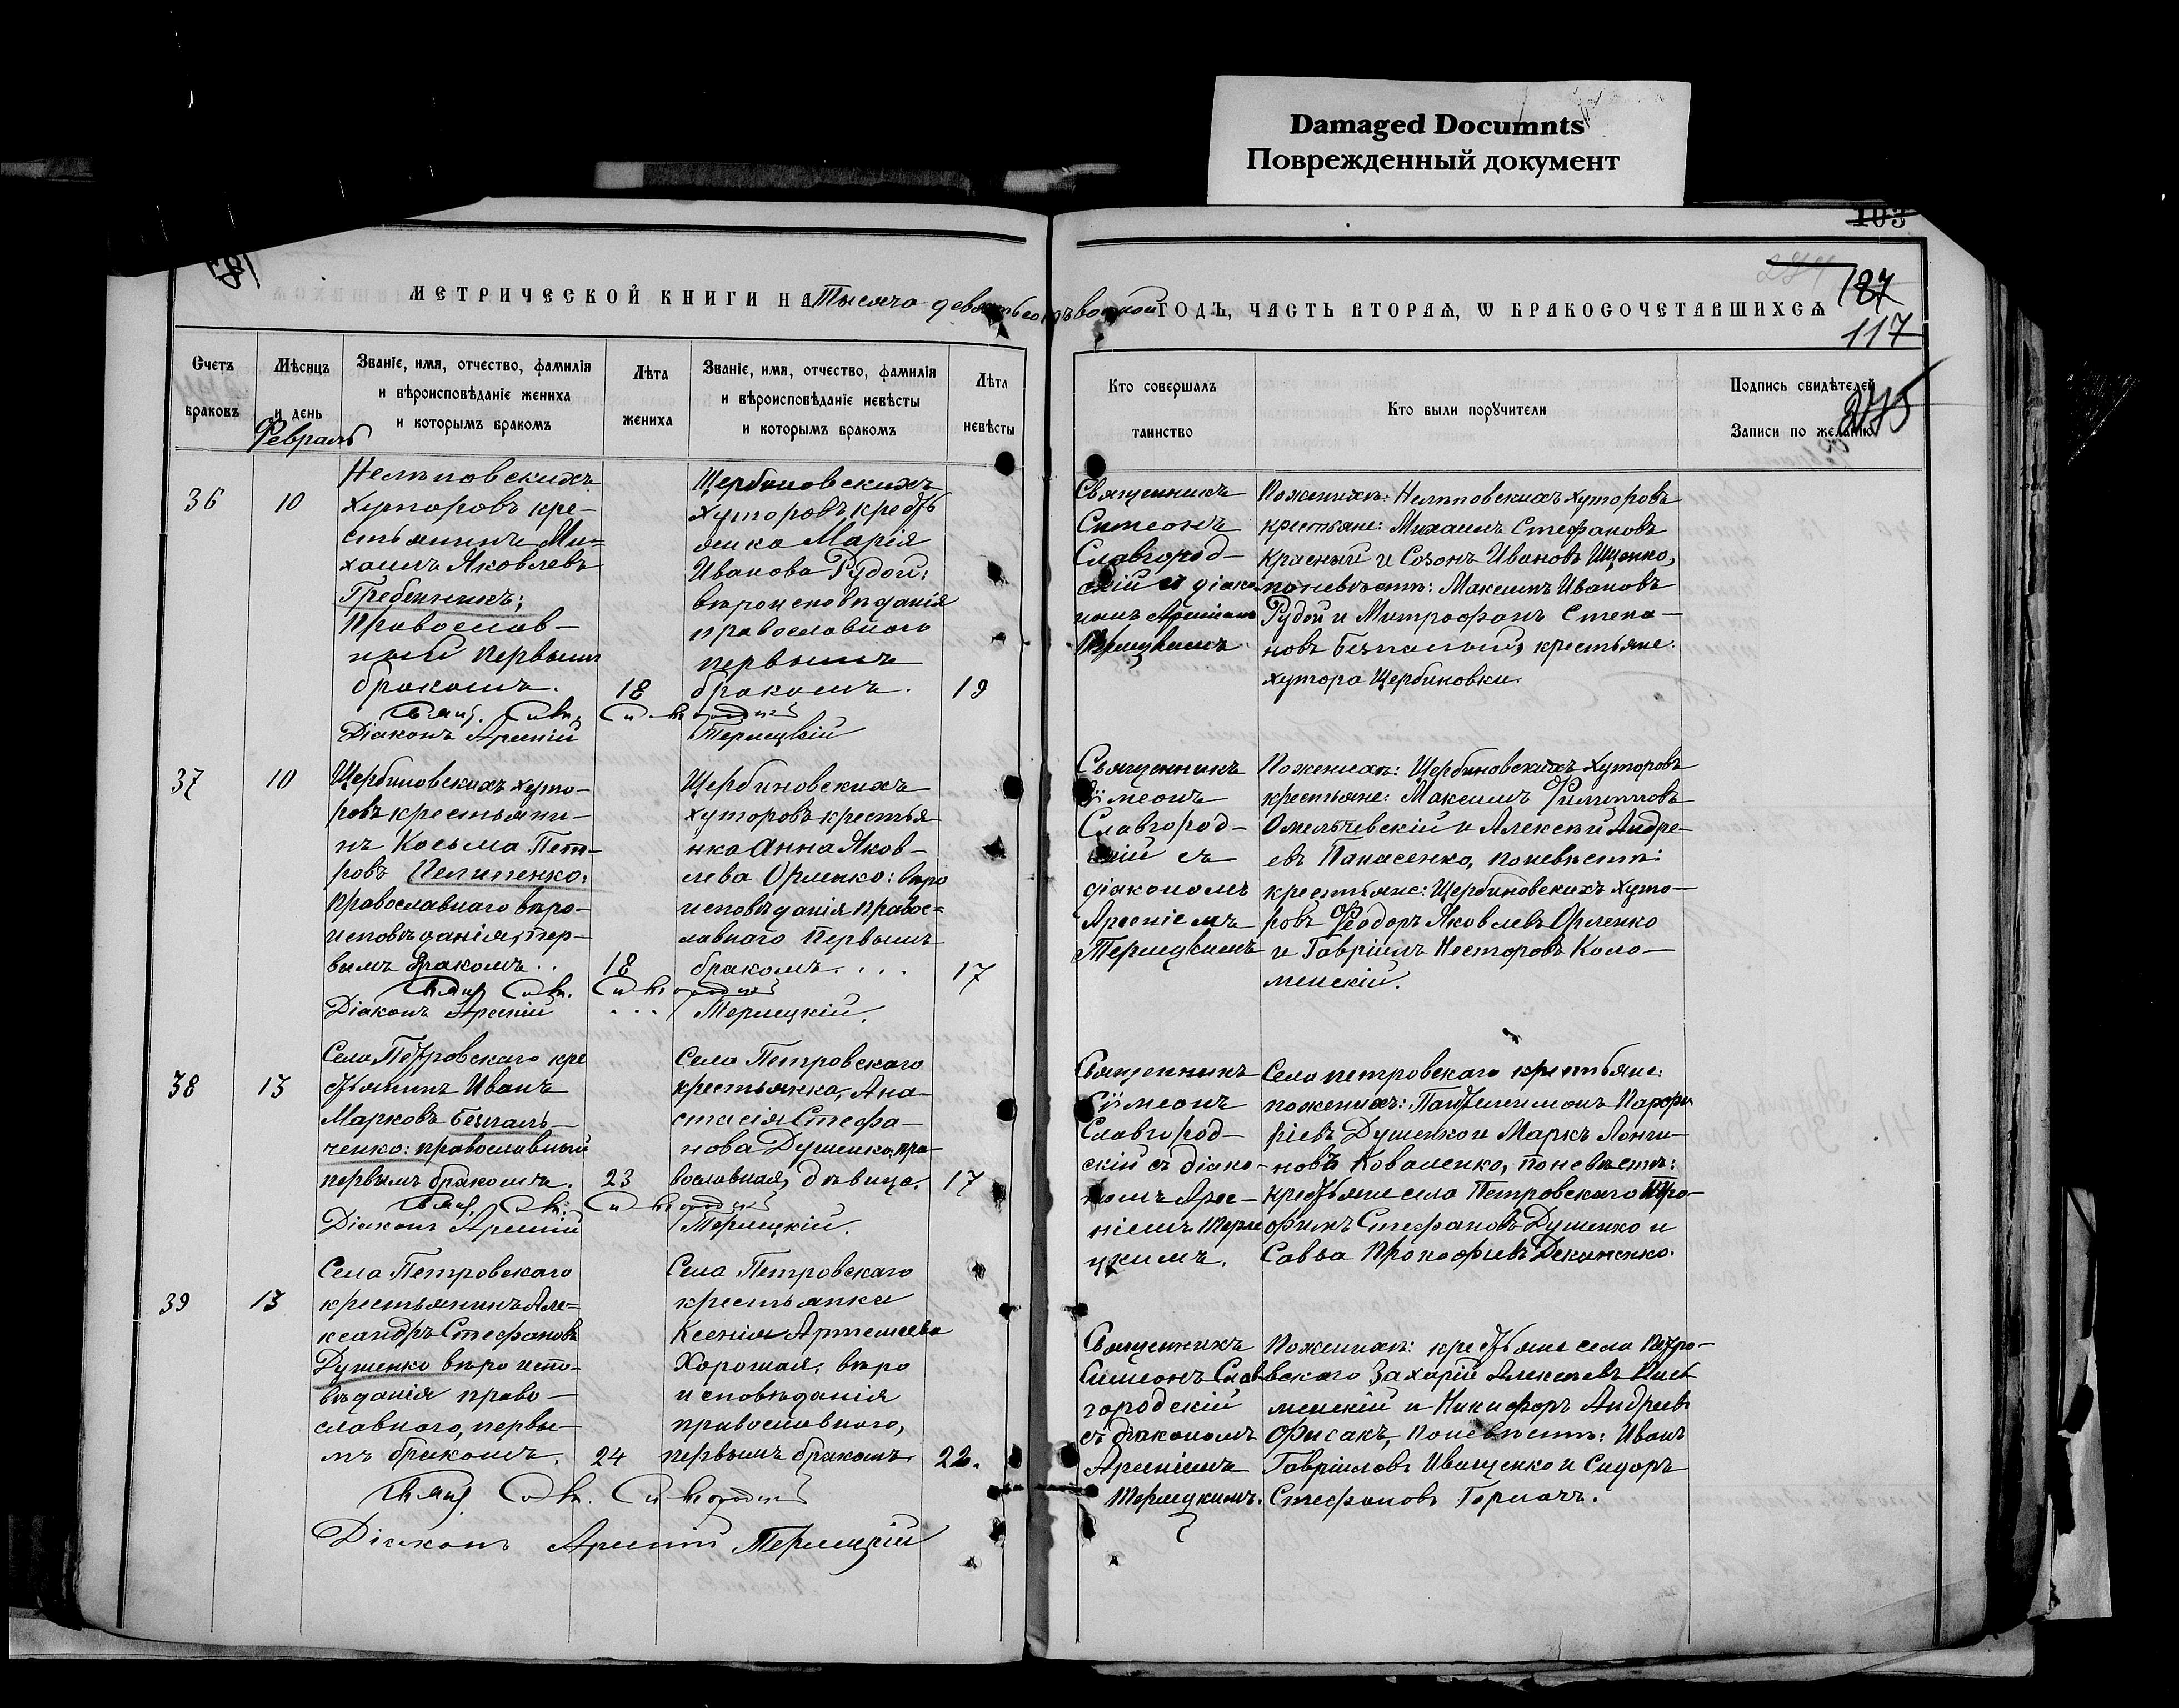 Damaged Documnts
Поврежденный документ
103
187
117
245
МЕТРИЧЕСКОЙ КНИГИ НА Тысяча девятьсотъ восмой ГОДЪ, ЧАСТЬ ВТОРАЯ, Ѡ БРАКОСОЧЕТАВШИХСЯ
Счетъ браковъ
Мѣсяцъ и день
Февраль
Званіе, имя, отчество, фамилія
и вѣроисповѣданіе жениха
и которымъ бракомъ
Лѣта жениха
Званіе, имя, отчество, фамилія
и вѣроисповѣданіе невѣсты
и которымъ бракомъ
Лѣта невѣсты
Кто совершалъ таинство
Кто были порꙋчители
Подпись свидѣтелей
Записи по желанію
36
10
хуторовъ кре-
стьянинъ Ми-
хаилъ Яковлевъ
Гребенникъ;
православ-
ный первымъ
бракомъ.
18
Щербиновскихъ
хуторовъ кресть
янка Марія
Иванова Рудой:
вѣроисповѣданія
православнаго
первымъ
бракомъ.
19
Діаконъ Арсеній Терлецкій
Священникъ
Симеонъ
Славгород-
скій и діако
номъ Арсеніемъ
Терлецкимъ
хуторовъ
крестьяне: Михаилъ Стефановъ
Красный и Созонъ Ивановъ Ищенко,
поневѣстѣ: Максимъ Ивановъ
Рудой и Митрофанъ Степа-
новъ Безпалый, крестьяне
хутора Щербиновки.
37
10
Щербиновскихъ хуто-
ровъ крестьяни-
нъ Косьма Пет-
ровъ Пелипенко:
православнаго вѣро-
исповѣданія, пер-
вымъ бракомъ..
18
Щербиновскихъ
хуторовъ крестья-
нка Анна Яков-
лева Орленко: вѣро
исповѣданія правос=
лавнаго первымъ
бракомъ....
17
Діаконъ Арсеній ... Терлецкій.
Священникъ
Сѵмеонъ
Славгород-
скій съ
діакономъ
Арсеніемъ
Терлецкимъ
Поженихѣ: Щербиновскихъ хуторовъ
крестьяне: Максимъ Филипповъ
Омельчевскій и Алексѣй Андре-
евъ Панасенко, поневѣстѣ:
крестьяне: Щербиновскихъ хуто-
ровъ Феодоръ Яковлевъ Орленко
и Гавріилъ Несторовъ Коло-
менскій.
38
13
Села Петровскаго кре
стьянинъ Иванъ
Марковъ Безпаль-
ченко: православный
первымъ бракомъ.
23
Села Петровскаго
крестьянка, Ана-
стасія Стефа-
нова Душенко, пра-
вославная, дѣвица.
17
Діаконъ Арсеній Терлецкій.
Священникъ
Сѵмеонъ
Славгород-
скій съ діако-
номъ Арсе-
ніемъ Терле
цкимъ.
Села петровскаго крестьяне:
поженихѣ: Пантелеимонъ Парфи
ріевъ Душенко и Маркъ Лонги-
новъ Коваленко, поневѣстѣ:
крестьяне села Петровскаго Тро-
фимъ Стефановъ Душенко и
Савва Прокофіевъ
39
13
Села Петровскаго
крестьянинъ Але=
ксандръ Стефановъ
Душенко вѣроиспо-
вѣданія право-
славнаго, первы-
мъ бракомъ.
24
Села Петровскаго
крестьянка
Ксенія Артемьева
Хорошая; вѣро
исповѣданія
православнаго,
первымъ бракомъ.
22.
Діаконъ Арсеній Терлецкій
Священникъ
Симеонъ Слав-
городскій
съ діакономъ
Арсеніемъ
Терлецкимъ.
Поженихѣ: крестьяне села Петро-
вскаго Захарій Алексѣевъ
и Никифоръ Андреевъ
Фисакъ, поневѣстѣ: Иванъ
Гавріиловъ Иващенко и Сидоръ
Стефановъ Горлачъ.